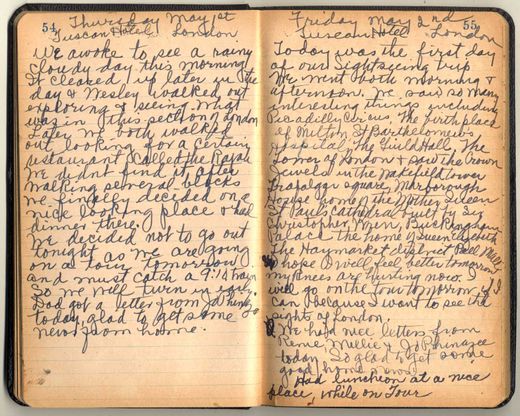 54
Thursday May 1st
Tuscan Hotel London
We awoke to see a rainy
cloudy day this morning
It cleared up later in the
day & Wesley walked out
exploring & seeing what
was in this section of London
Later we both walked
out looking for a certain
restaurant called the Rajah
We didnt find it, after
walking several blocks
we finally decided on a
nice looking place & had
dinner there.
We decided not to go out
tonight as we are going
on a tour tomorrow
and must catch a 9:15
So we will turn in early.
Dad got a letter from Jo
today, glad to get some
news from home.
55
Friday May 2nd
Tuscan Hotel London
Today was the first day
of our sightseeing trip
We went both morning &
afternoon. We saw so many
interesting things including
Picadilly Circus, The birthplace
of Milton St Bartholomews
Hospital, The Guild Hall, The
Tower of London & saw the Crown
Jewels in the Wakefield tower
Trafalgar square, Marborough
House home of the Mother Queen
St Pauls Cathedral built by Sir
Christopher Wren, Buckingham
Palace the home of Queen Elizabeth
The Haymarket district Pall Mall
I hope I will feel better tomorrow
my knees are hurting now. I
will go on the tour tomorrow, if I
can because I want to see the
sights of London.
We had nice letters from
Rene Millie & Jo
today So glad to get some
good home news
Had luncheon at a nice
place, while on Tour